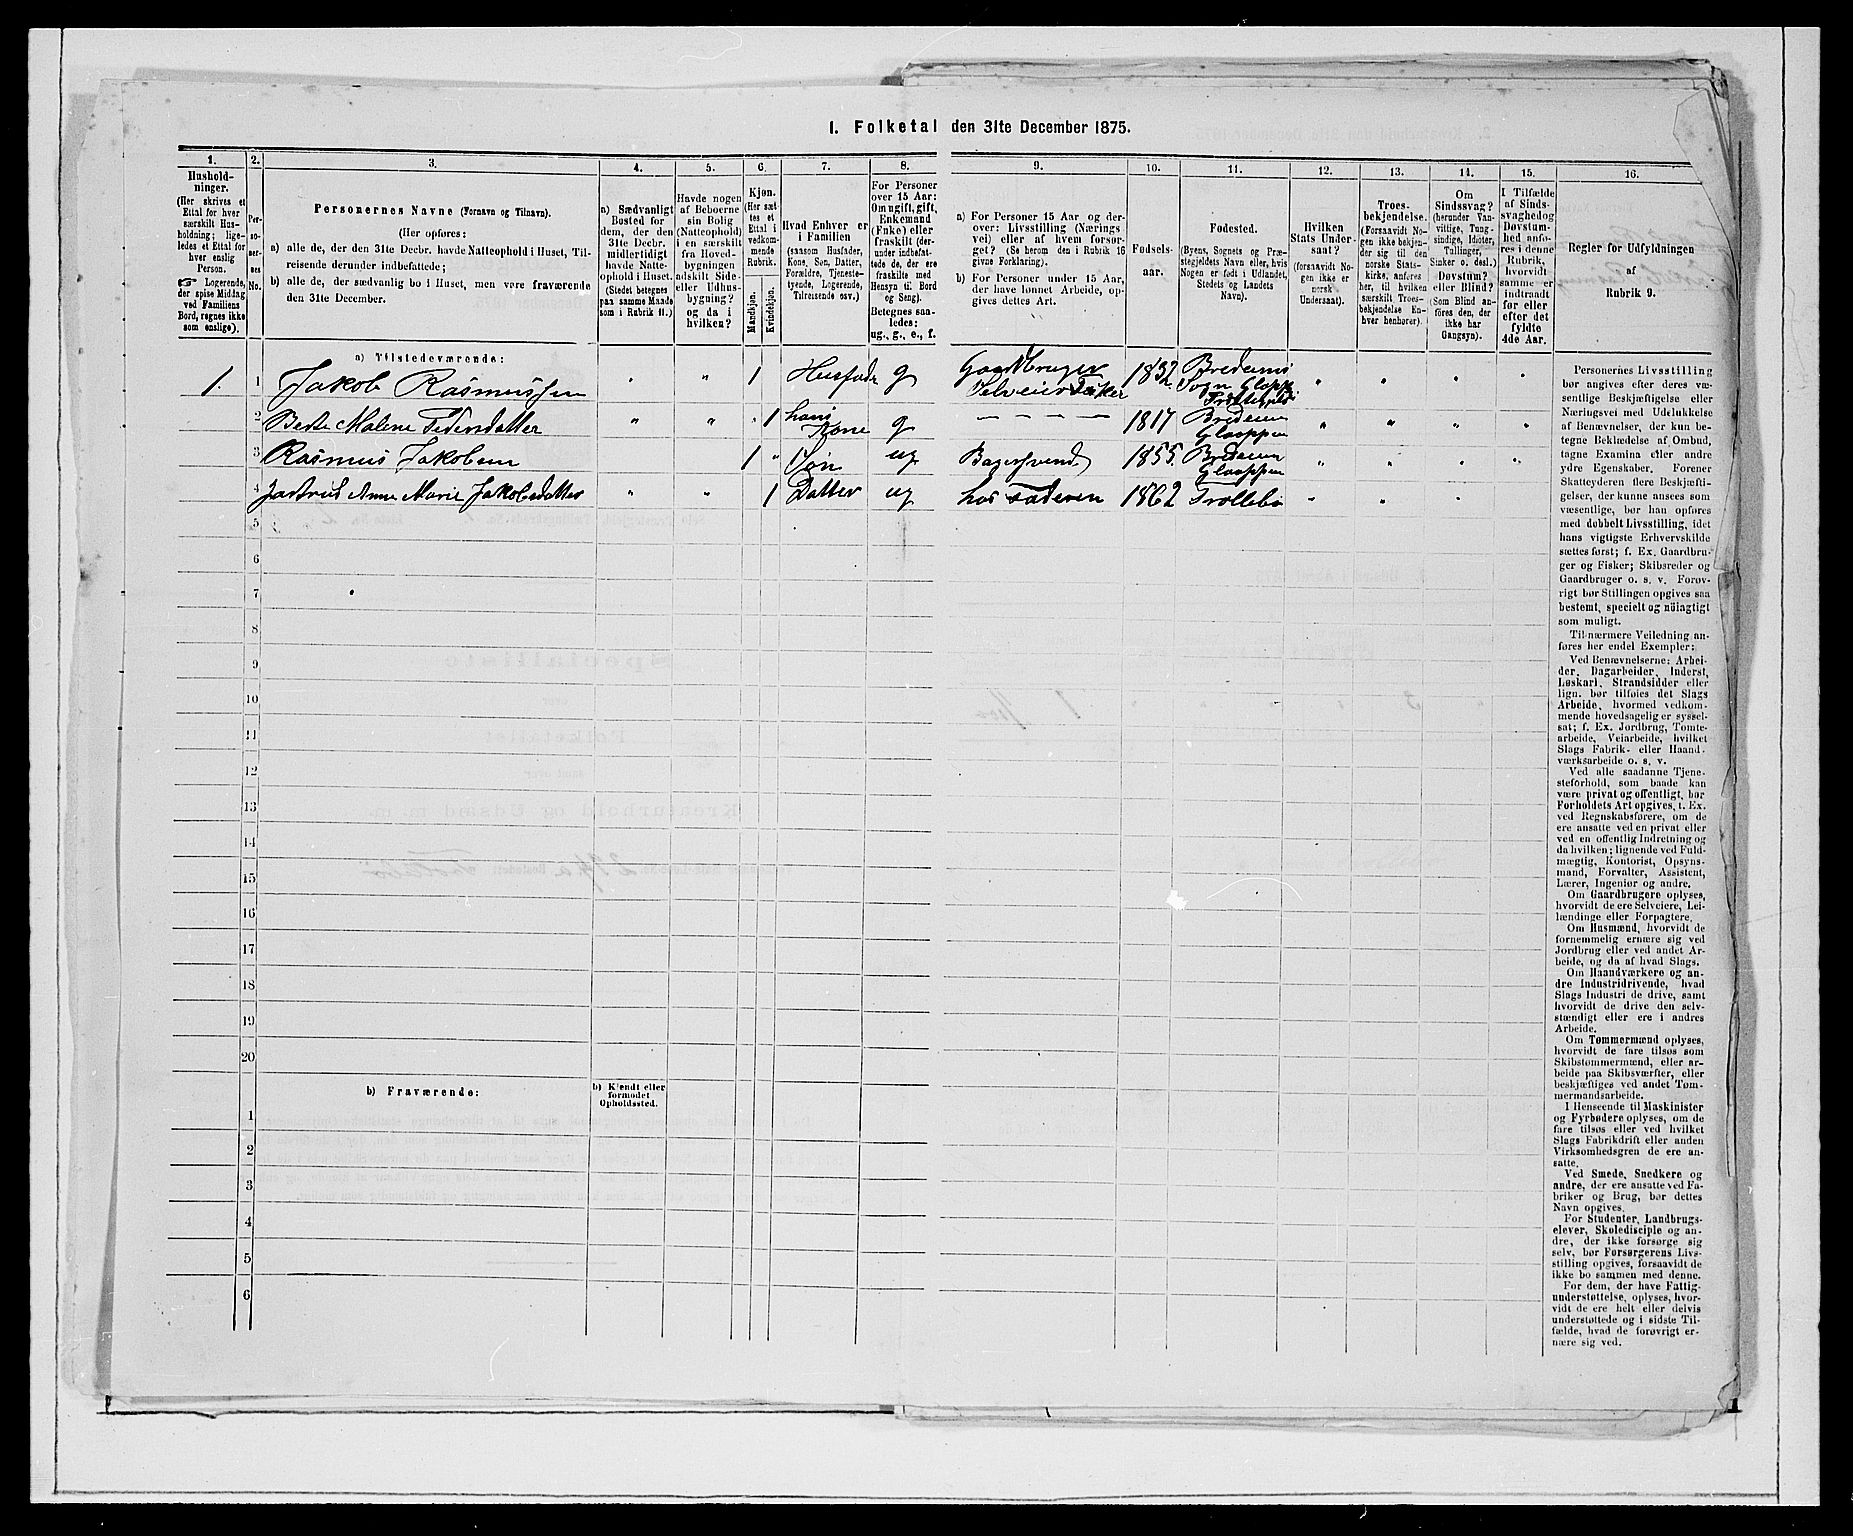 1. Folketal den 31te December 1875.
1. 2. 3. 4. 5. 6. 7. 8. 9. 10. 11. 12. 13. 14. 15. 16.
Hushold-
ninger.
(Her skrives et
Ettal for hver
særskilt Hus-
holdning; lige-
ledes et Ettal for
hver enslig
Person.
☞ Logerende,
der spise Middag
ved Familiens
Bord, regnes ikke
som enslige).
Per-
so-
ner-
nes
No.
Personernes Navne (Fornavn og Tilnavn).
(Her opføres:
a) alle de, der den 31te Decbr. havde Natteophold i Huset, Til-
reisende derunder indbefattede;
b) alle de, der sædvanlig bo i Huset, men vare fraværende
den 31te December.
a) Sædvanligt
Bosted for
dem, der den
31te Decbr.
midlertidigt
havde Natte-
ophold i Huset.
(Stedet betegnes
paa samme Maade
som i Rubrik 11.)
Havde nogen
af Beboerne
sin Bolig
(Natteophold)
i en særskilt
fra Hoved-
bygningen
adskilt Side-
eller Udhus-
bygning?
og da i
hvilken?
Kjøn.
(Her sæt-
tes et
Ettal i
vedkom-
mende
Rubrik.
Mandkjøn.
Kvindekjøn.
Hvad Enhver er
i Familien
(saasom Husfader,
Kone, Søn, Datter,
Forældre, Tjeneste-
tyende, Logerende,
Tilreisende osv.)
For Personer
over 15 Aar:
Om ugift, gift,
Enkemand
(Enke) eller
fraskilt (der-
under indbefat-
tede de, der ere
fraskilte med
Hensyn til Bord
og Seng).
Betegnes saa-
ledes:
ug., g., e., f.
a) For Personer 15 Aar og der-
over: Livsstilling (Nærings
vei) eller af hvem forsør-
get? (Se herom den i Rubrik 16
givne Forklaring).
b) For Personer under 15 Aar,
der have lønnet Arbeide, op-
gives dettes Art.
Fødsels-
aar.
Fødested.
(Byens, Sognets og Præ-
stegjeldets Navn eller, hvis
Nogen er født i Udlandet,
Stedets og Landets
Navn).
Hvilken
Stats Under-
saat?
(forsaavidt No-
gen ikke er
norsk
Undersaat).
Troes-
bekjendelse.
(Forsaavidt No-
gen ikke bekjen-
der sig til den
norske Stats-
kirke, anføres
her, til hvilken
særskilt Troes-
bekjendelse En-
hver henhører).
Om
Sindssvag?
(herunder Van-
vittige, Tung-
sindige, Idioter,
Tullinger,
Sinker o. desl.)
Døvstum?
eller Blind?
(Som Blind an-
føres den, der
ikke har
Gangsyn).
I Tilfælde
af Sinds-
svaghed og
Døvstum-
hed anfø-
res i denne
Rubrik,
hvorvidt
samme er
indtraadt
før eller
efter det
fyldte
4de Aar.
Regler for Udfyldningen
af
Rubrik 9.
a) Tilstedeværende:
1. 1 Jakob Rasmussen " " 1 Husfader g Gaardbruger
Selveier 1832 Bredeims
Sogn Glopp.
2 Berte Malene Pedersdatter " " 1 hans
Kone g – – – – 1817 Bredeim
Gloppen
3 Rasmus Jakobsen 1 " Søn ug Bagersvend 1855. Bredeim
Gloppen
4 Anne Marie Jakobsdatter " " 1 Datter ug hos Faderen 1862 Trollebø
5
6
7
8
9
10
11
12
13
14
15
16
17
18
19
20
b) Fraværende:
b) Kjendt eller
formodet
Opholdssted.
1
2
3
4
5
6
Personernes Livsstilling
bør angives efter deres væ-
sentlige Beskjæftigelse eller
Næringsvei med Udelukkelse
af Benævnelser, der kun be-
tegne Beklædelse af Ombud,
tagne Examina eller andre
ydre Egenskaber. Forener
Skatteyderen flere Beskjæfti-
gelser, der kunne ansees som
væsentlige, bør han opføres
med dobbelt Livsstilling, idet
hans vigtigste Erhvervskilde
sættes først; f. Ex. Gaardbru-
ger og Fisker; Skibsreder og
Gaardbruger o. s. v. Forøv-
rigt bør Stillingen opgives saa
bestemt, specielt og nøiagtigt
som muligt.
Til nærmere Veiledning an-
føres her endel Exempler:
Ved Benævnelserne: Arbei-
der, Dagarbeider, Inderst,
Løskarl, Strandsidder eller
lign. bør tilføies det Slags
Arbeide, hvormed vedkom-
mende hovedsagelig er syssel-
sat; f. Ex. Jordbrug, Tomte-
arbeide, Veiarbeide, hvilket
Slags Fabrik- eller Haand-
værksarbeide o. s. v.
Ved alle saadanne Tjene-
steforhold, som baade kan
være privat og offentligt, bør
Forholdets Art opgives, t. Ex.
ved Regnskabsførere, om de
ere ansatte ved en privat eller
ved en offentlig Indretning og
da hvilken; lignende ved Fuld-
mægtig, Kontorist, Opsyns-
mand, Forvalter, Assistent,
Lærer, Ingeniør og andre.
Om Gaardbrugere oplyses,
hvorvidt de ere Selveiere, Lei-
lændinge eller Forpagtere.
Om Husmænd, hvorvidt de
fornemmelig ernære sig ved
Jordbrug eller ved andet Ar-
beide, og da af hvad Slags.
Om Haandværkere og an-
dre Industridrivende, hvad
Slags Industri de drive, samt
hvorvidt de drive den selv-
stændigt eller ere i andres
Arbeide.
Om Tømmermænd oplyses,
hvorvidt de fare tilsøs som
Skibstømmermænd, eller ar-
beide paa Skibsværfter, eller
beskjæftiges ved andet Tøm-
mermandsarbeide.
I Henseende til Maskinister
og Fyrbødere oplyses, om de
fare tilsøs eller ved hvilket
Slags Fabrikdrift eller anden
Virksomhedsgren de ere an-
satte.
Ved Smede, Snedkere og
andre, der ere ansatte ved Fa-
briker og Brug, bør dettes
Navn opgives.
For Studenter, Landbrugs-
elever, Skoledisciple og an-
dre, der ikke forsørge sig
selv, bør Forsørgerens Livs-
stilling opgives, forsaavidt de
ikke bo sammen med denne.
For dem, der have Fattig-
understøttelse, oplyses, hvor-
vidt de ere helt eller delvis
understøttede og i sidste Til-
fælde, hvad de forøvrigt er-
nære sig ved.